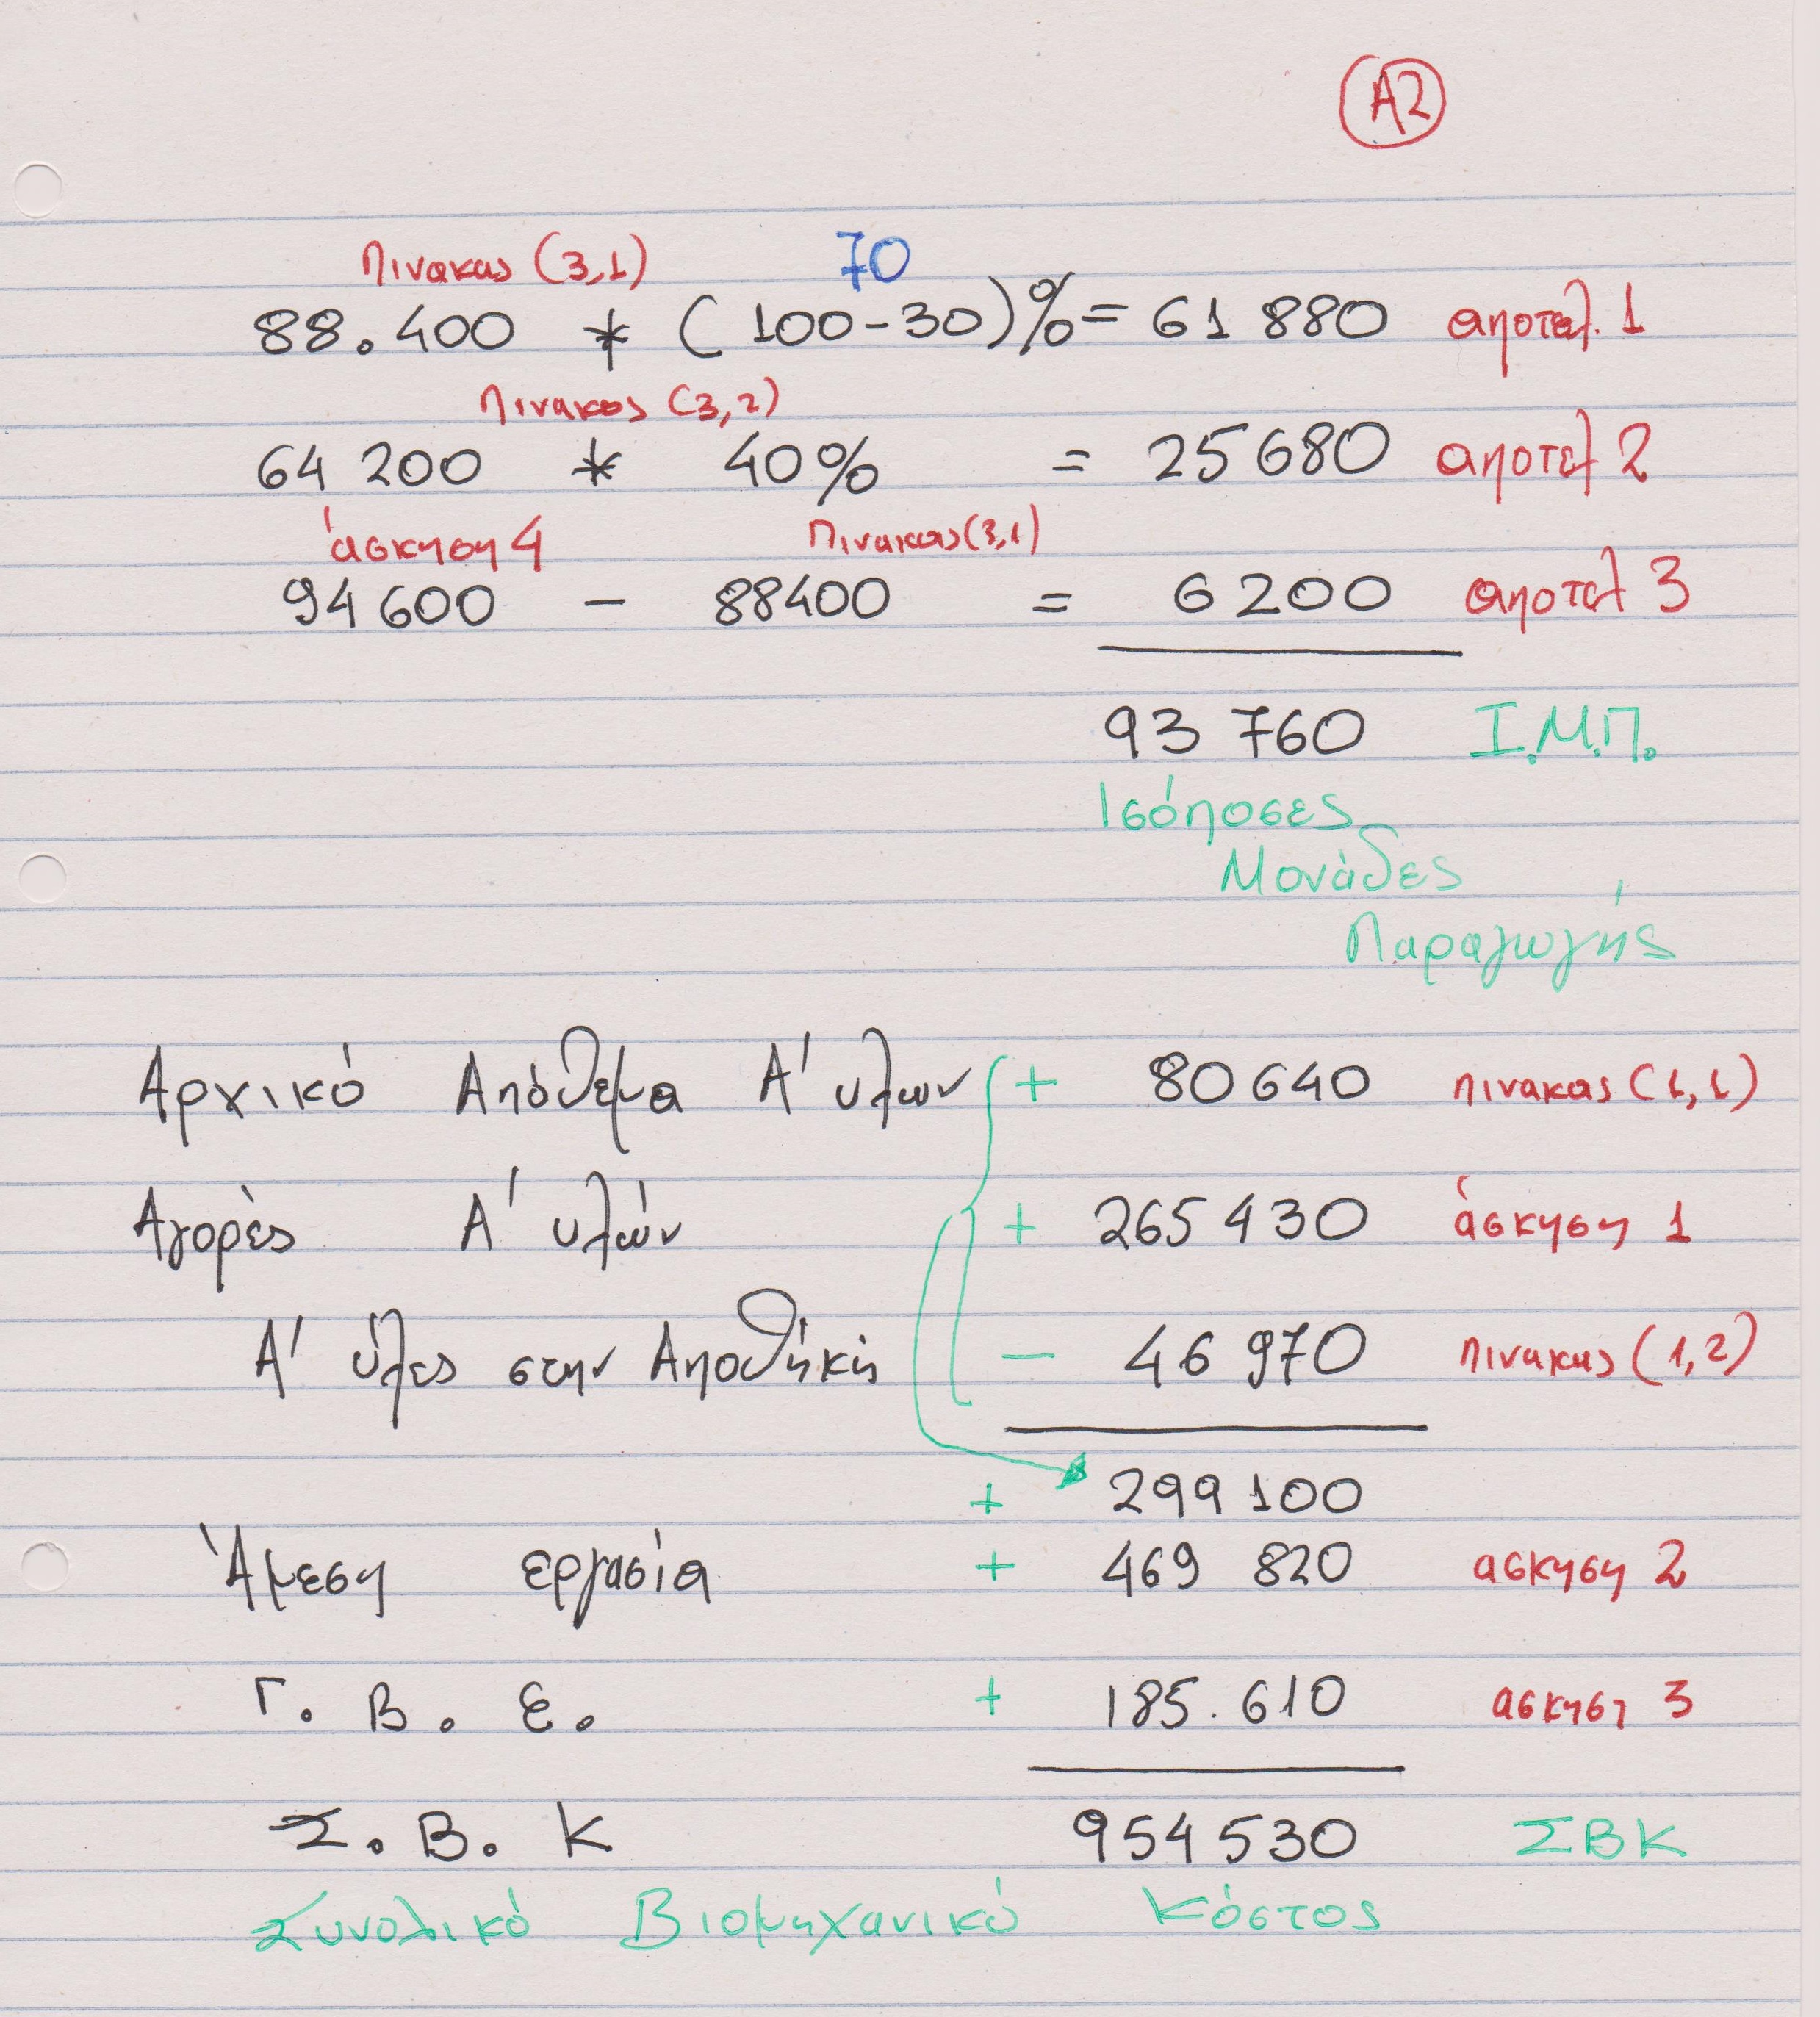 Α2
πινακας (3,1) 70
88.400 * (100-30)% = 61 880 αποτελ. 1
πινακας (3,2)
64 200 * 40% = 25 680 αποτελ 2
άσκηση 4 πινακας (3,1)
94 600 - 88400 = 6 200 αποτελ 3
93 760 Ι.Μ.Π.
Ισόποσες
Μονάδες
Παραγωγής
Αρχικό Απόθεμα Α' υλων + 80 640 πινακας (1,1)
Αγορές Α' υλών + 265 430 άσκηση 1
Α' ύλες στην Αποθήκη - 46 970 πινακας (1,2)
+ 299 100
Άμεση εργασία + 469 820 ασκηση 2
Γ. Β. Ε. + 185.610 ασκηση 3
Σ. Β. Κ 954 530 ΣΒΚ
Συνολικό Βιομηχανικό Κόστος